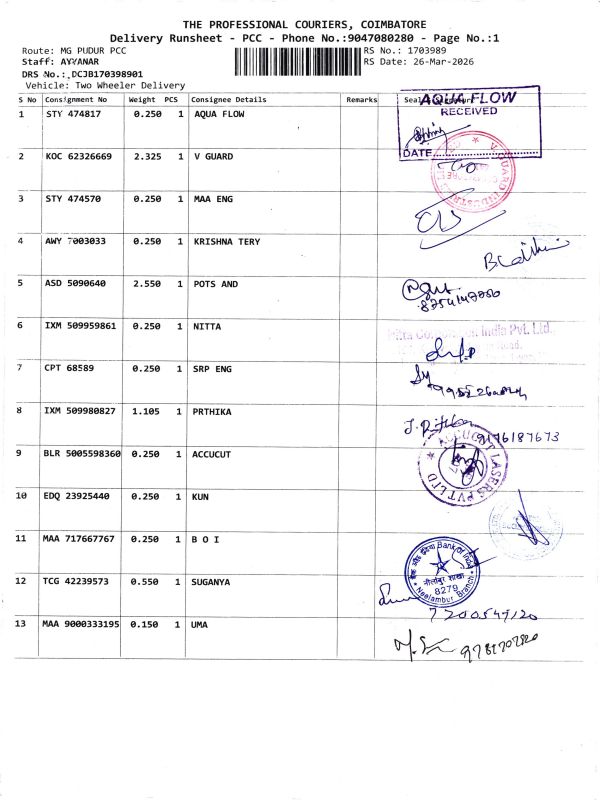 THE PROFESSIONAL COURIERS, COIMBATORE
Delivery Runsheet - PCC - Phone No.:9047080280 - Page No.:1
Route: MG PUDUR PCC
RS No.: 1703989
Staff: AYYANAR
RS Date: 26-Mar-2026
DRS No.: DCJB170398901
Vehicle: Two Wheeler Delivery
S No Consignment No Weight PCS Consignee Details Remarks Seal
1 STY 474817 0.250 1 AQUA FLOW
AQUA FLOW
RECEIVED
DATE
2 KOC 62326669 2.325 1 V GUARD
V GUARD INDUSTRIES
3 STY 474570 0.250 1 MAA ENG
4 AWY 7003033 0.250 1 KRISHNA TERY
5 ASD 5090640 2.550 1 POTS AND
6 IXM 509959861 0.250 1 NITTA
India Pvt. Ltd.
7 CPT 68589 0.250 1 SRP ENG
8 IXM 509980827 1.105 1 PRTHIKA
9176187673
9 BLR 5005598360 0.250 1 ACCUCUT
ACCUCUT LASERS PVT LTD
10 EDQ 23925440 0.250 1 KUN
11 MAA 717667767 0.250 1 B O I
Bank of India
नीलांबूर शाखा
8279
Neelambur Branch
12 TCG 42239573 0.550 1 SUGANYA
7200549120
13 MAA 9000333195 0.150 1 UMA